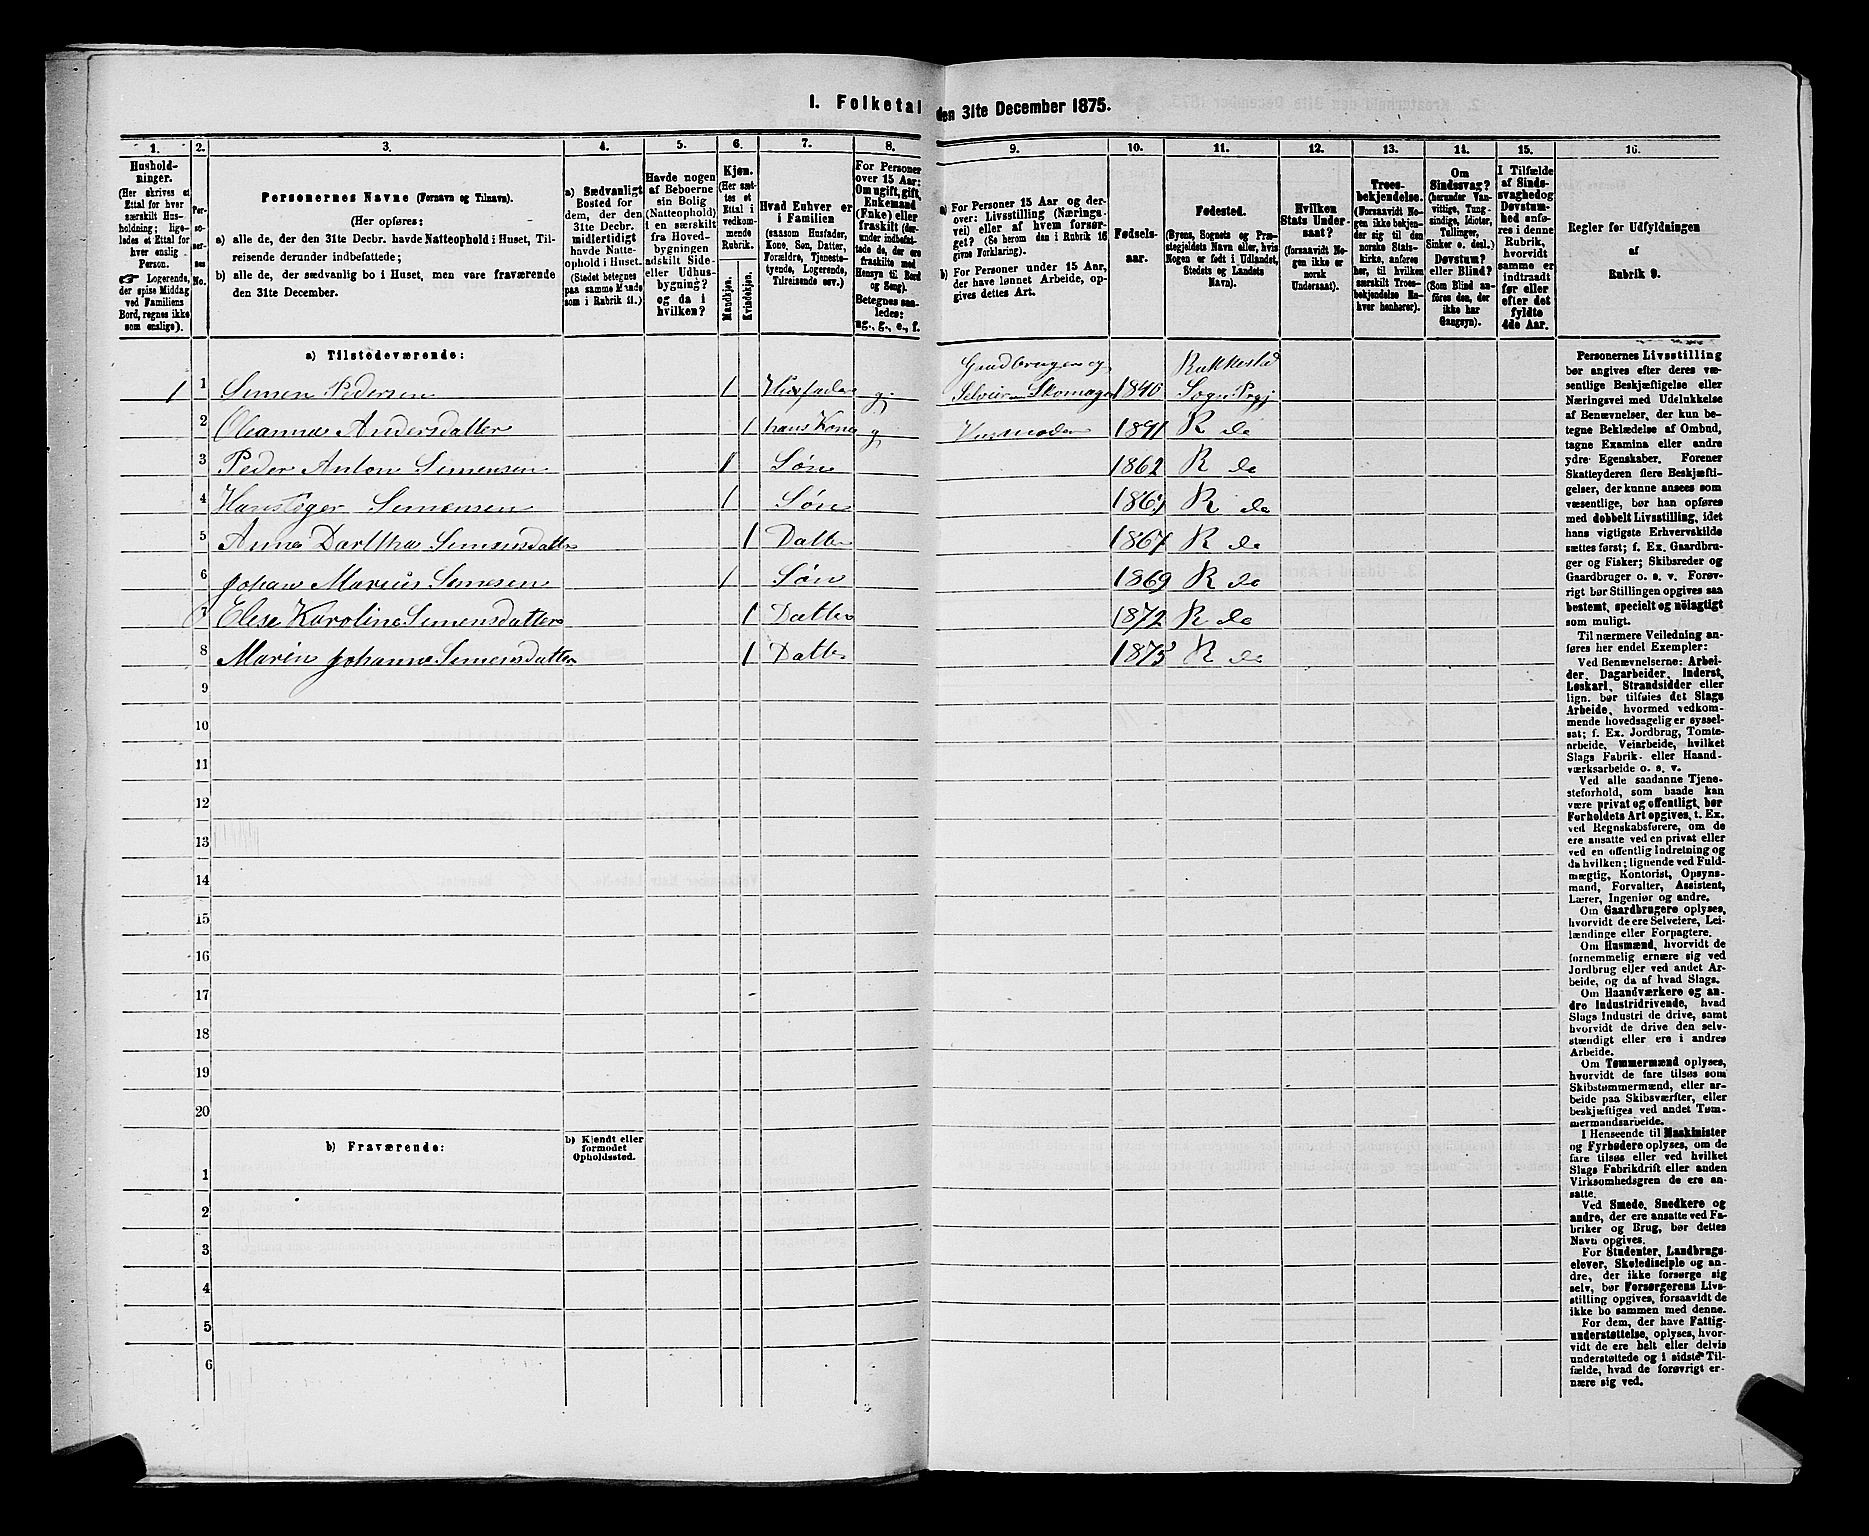 I. Folketal den 31te December 1875.
1.
Hushold-
ninger.
(Her skrives et
Ettal for hver
særskilt Hus-
holdning; lige-
ledes et Ettal for
hver enslig
Person.
☞ Logerende,
der spise Middag
ved Familiens
Bord, regnes ikke
som enslige).
2.
Per-
so-
ner-
nes
No.
3.
Personernes Navne (Fornavn og Tilnavn).
(Her opføres:
a) alle de, der den 31te Decbr. havde Natteophold i Huset, Til-
reisende derunder indbefattede;
b) alle de, der sædvanlig bo i Huset, men vare fraværende
den 31te December.
4.
a) Sædvanligt
Bosted for
dem, der den
31te Decbr.
midlertidigt
havde Natte-
ophold i Huset.
(Stedet betegnes
paa samme Maade
som i Rubrik 11.)
5.
Havde nogen
af Beboerne
sin Bolig
(Natteophold)
i en særskilt
fra Hoved-
bygningen
adskilt Side-
eller Udhus-
bygning?
og da i
hvilken?
6.
Kjøn.
(Her sæt-
tes et
Ettal i
vedkom-
mende
Rubrik.
Mandkjøn.
Kvindekjøn.
7.
Hvad Enhver er
i Familien
(saasom Husfader,
Kone, Søn, Datter,
Forældre, Tjeneste-
tyende, Logerende,
Tilreisende osv.)
8.
For Personer
over 15 Aar:
Om ugift, gift,
Enkemand
(Enke) eller
fraskilt (der-
under indbefat-
tede de, der ere
fraskilte med
Hensyn til Bord
og Seng).
Betegnes saa-
ledes:
ug., g., e., f.
9.
a) For Personer 15 Aar og der-
over: Livsstilling (Nærings-
vei) eller af hvem forsør-
get? (Se herom den i Rubrik 16
givne Forklaring).
b) For Personer under 15 Aar,
der have lønnet Arbeide, op-
gives dettes Art.
10.
Fødsels-
aar.
11.
Fødested.
(Byens, Sognets og Præ-
stegjeldets Navn eller, hvis
Nogen er født i Udlandet,
Stedets og Landets
Navn).
12.
Hvilken
Stats Under-
saat?
(forsaavidt No-
gen ikke er
norsk
Undersaat).
13.
Troes-
bekjendelse.
(Forsaavidt No-
gen ikke bekjen-
der sig til den
norske Stats-
kirke, anføres
her, til hvilken
særskilt Troes-
bekjendelse En-
hver henhører).
14.
Om
Sindssvag?
(herunder Van-
vittige, Tung-
sindige, Idioter,
Tullinger,
Sinker o. desl.)
Døvstum?
eller Blind?
(Som Blind an-
føres den, der
ikke har
Gangsyn).
15.
I Tilfælde
af Sinds-
svaghed og
Døvstum-
hed anfø-
res i denne
Rubrik,
hvorvidt
samme er
indtraadt
før eller
efter det
fyldte
4de Aar.
16.
Regler for Udfyldningen
af
Rubrik 9.
a) Tilstedeværende:
Gaardbruger og Rakkestad
1 1 Simen Pedersen 1 Husfader g. Selveier Skomager 1840 Sogn Prgj
2 Oleanna Andersdatter 1 hans Kone g 1841 R do
3 Peder Anton Simensen 1 Søn 1862 R do
4 Simensen 1 Søn R do
5 Anne Dorthea Simensdatter 1 Datter 1867 R do
6 Johan Marius Simesen 1 Søn 1869 R do
7 Elise Karoline Simensdatter 1 Datter 1872 R do
8 Marin Johanne Simensdatter 1 Datter 1875 R do
9
10
11
12
13
14
15
16
17
18
19
20
b) Fraværende:
b) Kjendt eller
formodet
Opholdssted.
1
2
3
4
5
6
Personernes Livsstilling
bør angives efter deres væ-
sentlige Beskjæftigelse eller
Næringsvei med Udelukkelse
af Benævnelser, der kun be-
tegne Beklædelse af Ombud,
tagne Examina eller andre
ydre Egenskaber. Forener
Skatteyderen flere Beskjæfti-
gelser, der kunne ansees som
væsentlige, bør han opføres
med dobbelt Livsstilling, idet
hans vigtigste Erhvervskilde
sættes først; f. Ex. Gaardbru-
ger og Fisker; Skibsreder og
Gaardbruger o. s. v. Forøv-
rigt bør Stillingen opgives saa
bestemt, specielt og nöiagtigt
som muligt.
Til nærmere Veiledning an-
føres her endel Exempler:
Ved Benævnelserne: Arbei-
der, Dagarbeider, Inderst,
Løskarl, Strandsidder eller
lign. bør tilføies det Slags
Arbeide, hvormed vedkom-
mende hovedsagelig er syssel-
sat; f. Ex. Jordbrug, Tomte-
arbeide, Veiarbeide, hvilket
Slags Fabrik- eller Haand-
værksarbeide o. s. v.
Ved alle saadanne Tjene-
steforhold, som baade kan
være privat og offentligt, bør
Forholdets Art opgives, t. Ex.
ved Regnskabsførere, om de
ere ansatte ved en privat eller
ved en offentlig Indretning og
da hvilken; lignende ved Fuld-
mægtig, Kontorist, Opsyns-
mand, Forvalter, Assistent,
Lærer, Ingeniør og andre.
Om Gaardbrugere oplyses,
hvorvidt de ere Selveiere, Lei-
lændinge eller Forpagtere.
Om Husmænd, hvorvidt de
fornemmelig ernære sig ved
Jordbrug eller ved andet Ar-
beide, og da af hvad Slags.
Om Haandværkere og an-
dre Industridrivende, hvad
Slags Industri de drive, samt
hvorvidt de drive den selv-
stændigt eller ere i andres
Arbeide.
Om Tømmermænd oplyses,
hvorvidt de fare tilsøs som
Skibstømmermænd, eller ar-
beide paa Skibsværfter, eller
beskjæftiges ved andet Tøm-
mermandsarbeide.
I Henseende til Maskinister
og Fyrbødere oplyses, om de
fare tilsøs eller ved hvilket
Slags Fabrikdrift eller anden
Virksomhedsgren de ere an-
satte.
Ved Smede, Snedkere og
andre, der ere ansatte ved Fa-
briker og Brug, bør dettes
Navn opgives.
For Studenter, Landbrugs-
elever, Skoledisciple og an-
dre, der ikke forsørge sig
selv, bør Forsørgerens Livs-
stilling opgives, forsaavidt de
ikke bo sammen med denne.
For dem, der have Fattig-
understøttelse, oplyses, hvor-
vidt de ere helt eller delvis
understøttede og i sidste Til-
fælde, hvad de forøvrigt er-
nære sig ved.